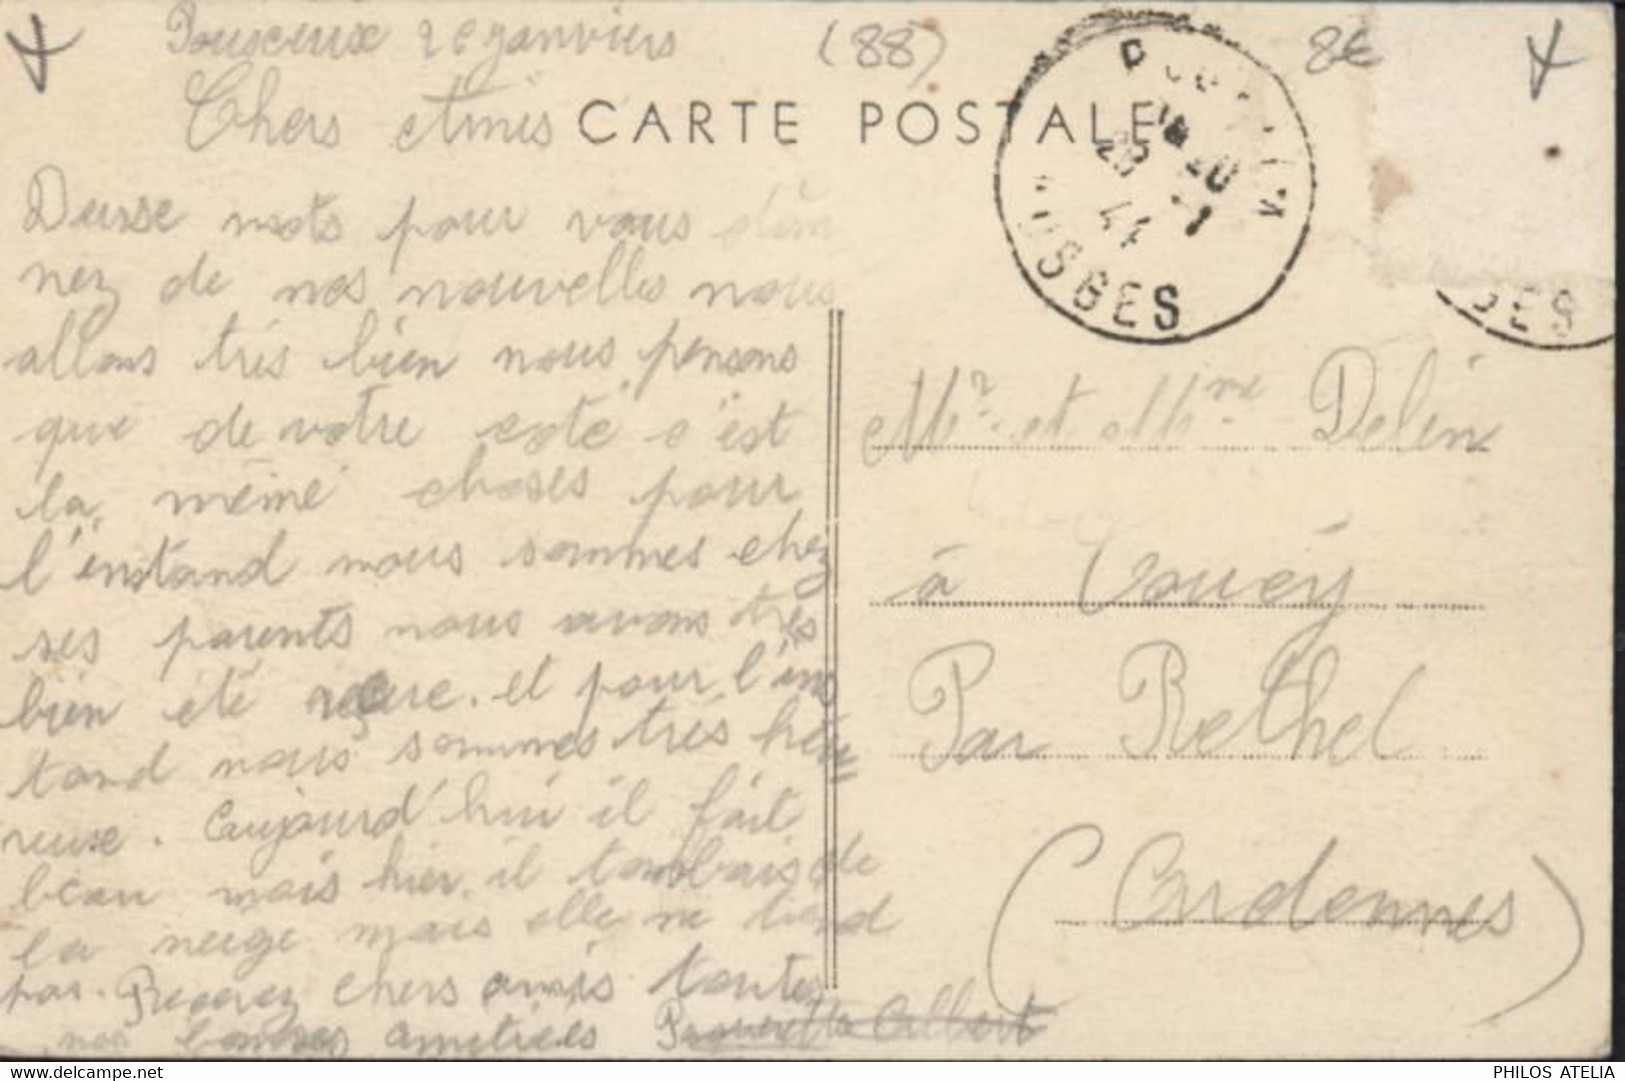 Pouxeux 26 Janviers
(88)
8€
Chers Amis
CARTE POSTALE
18 20
VOSGES
Deuse mots pour vous don
nez de nos nouvelles nous
allons très bien nous pensons
que de votre coté c'est
la même choses pour
l'enstand nous sommes chez
ses parents nous avons très
bien été reçure. et pour l'ins
tand nous sommes très heu
reuse. Aujourd'hui il fait
beau mais hier il tombais de
la neige mais elle ne tiend
pas. Recevez chers amis toutes
nos bonnes amitiees Albert
Mr. et Mme Delin
à Coucy
Par Rethel
(Ardennes)
PHILOS ATELIA
www.delcampe.net